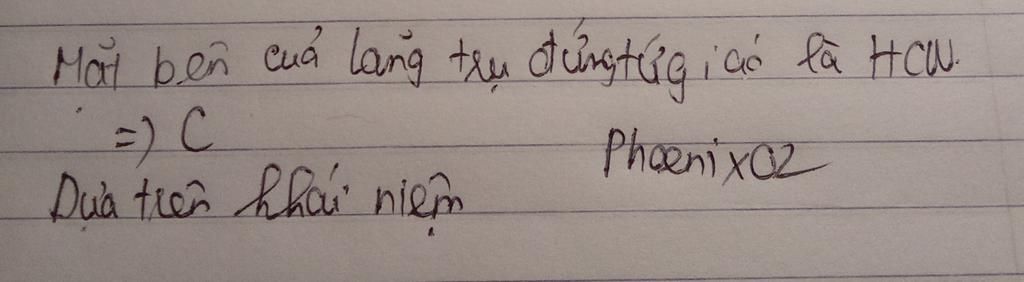 Mặt bên của lăng trụ đứng tứ giác là HCN.
=) C
Phoenix02
Dựa trên khái niệm